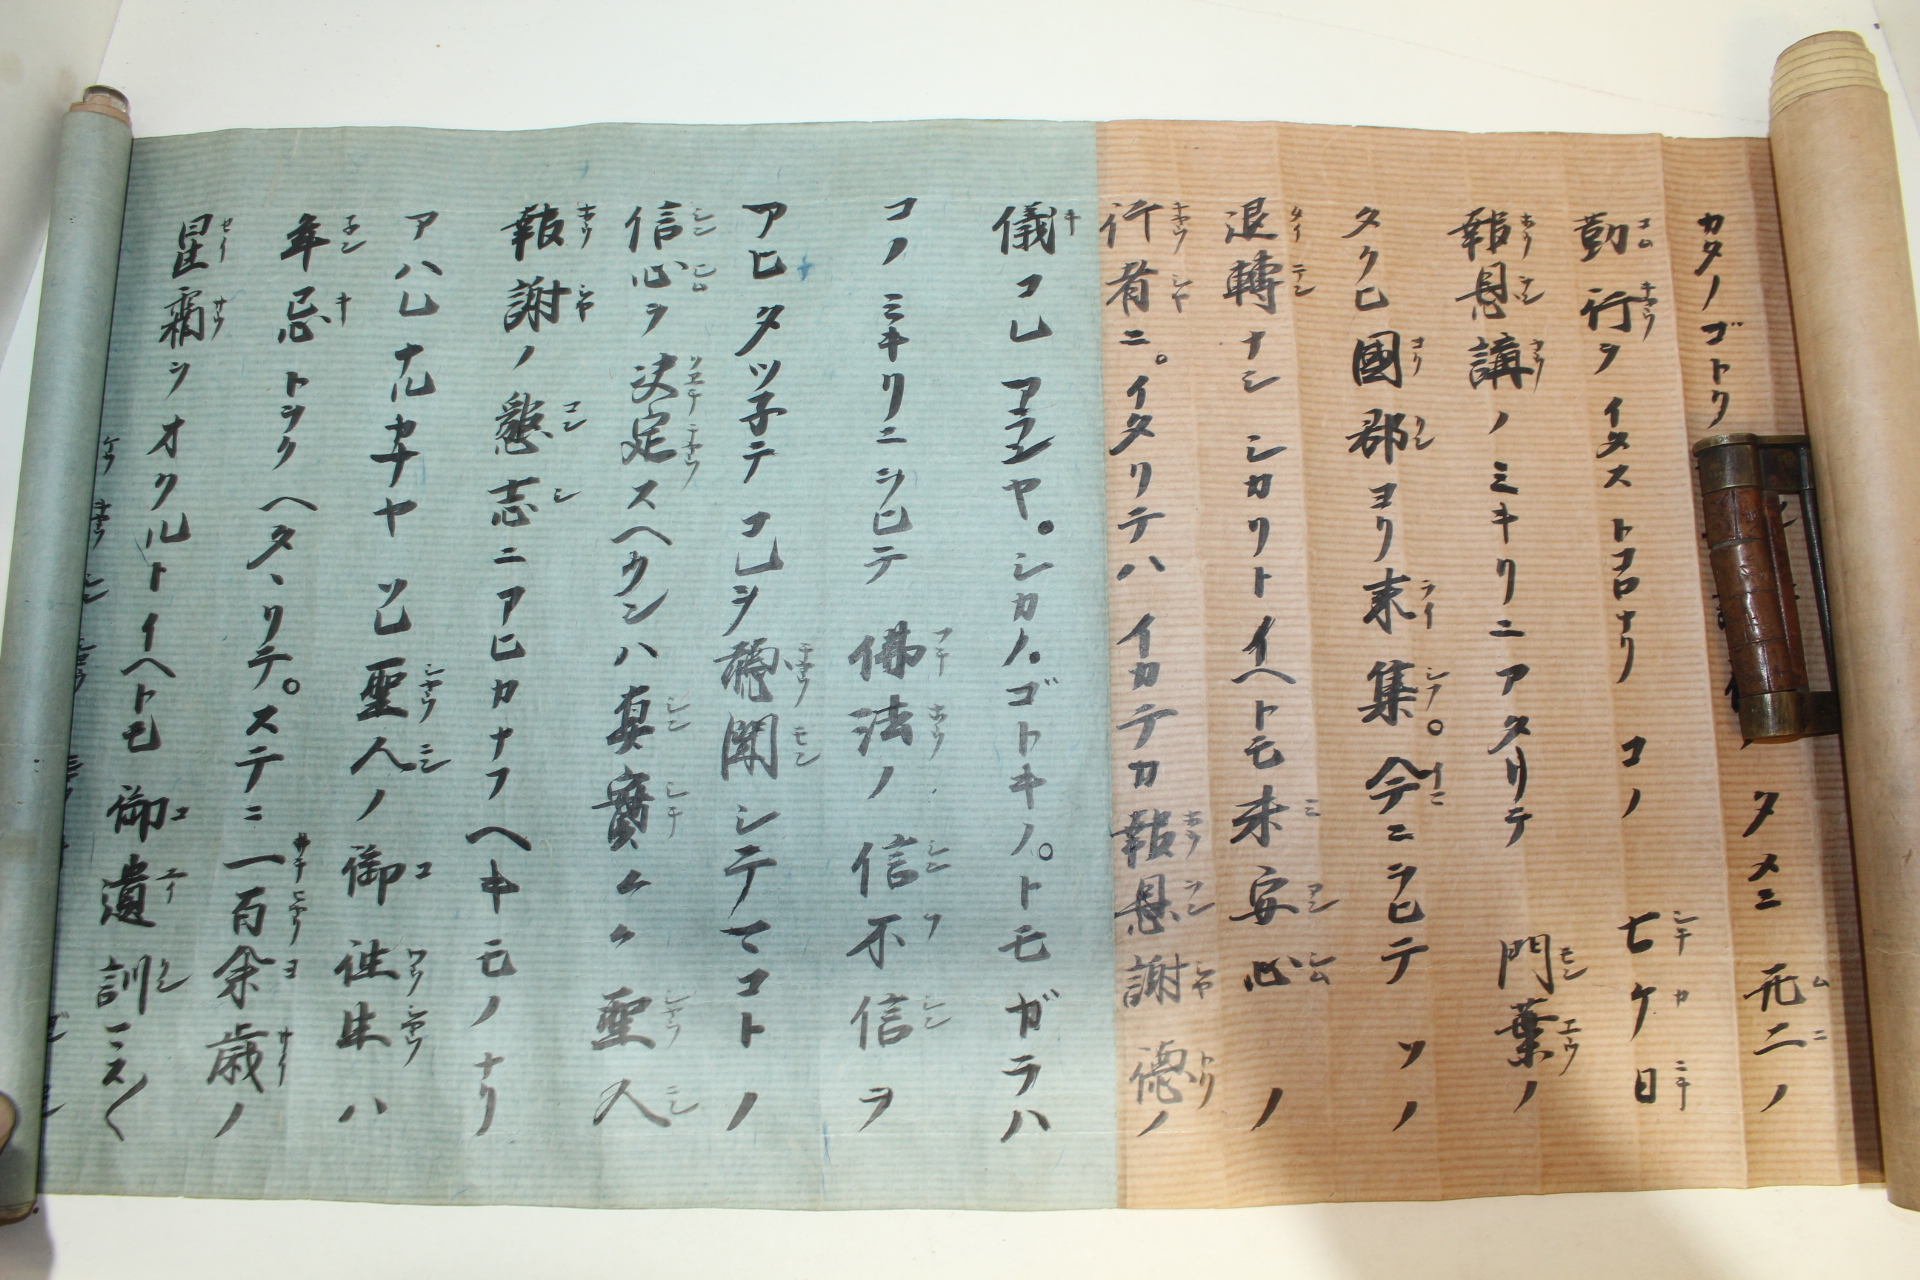 カタノゴトク タメニ无二ノ
勤行ヲイタストコロナリ コノ七ケ日
報恩講ノミキリニアタリテ 門葉ノ
タクヒ國郡ヨリ来集。今ニヲヒテソノ
退轉ナシ シカリトイヘトモ未安心ノ
行者ニ。イタリテハイカテカ報恩謝徳ノ
儀コレアランヤ。シカノ。ゴトキノ。トモガラハ
コノミキリニヲヒテ佛法ノ信不信ヲ
アヒタツ子テコレヲ聴聞シテマコトノ
信心ヲ決定スヘクンハ真實〱聖人
報謝ノ懇志ニアヒカナフヘキモノナリ
アハレナルカナヤソレ聖人ノ御往生ハ
年忌トヲクヘタヽリテ。ステニ一百余歳ノ
星霜ヲオクルトイヘトモ御遺訓マス〱